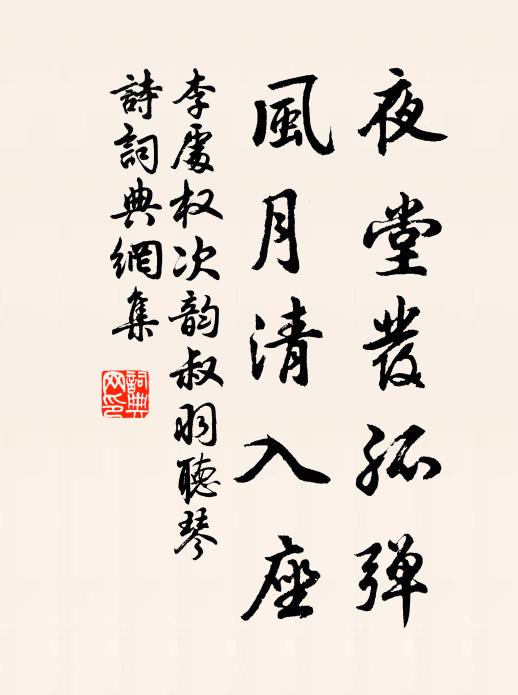 夜堂發孤弹
風月清入座
李處权次韵叔羽聽琴
詩詞典網集
詞典网印